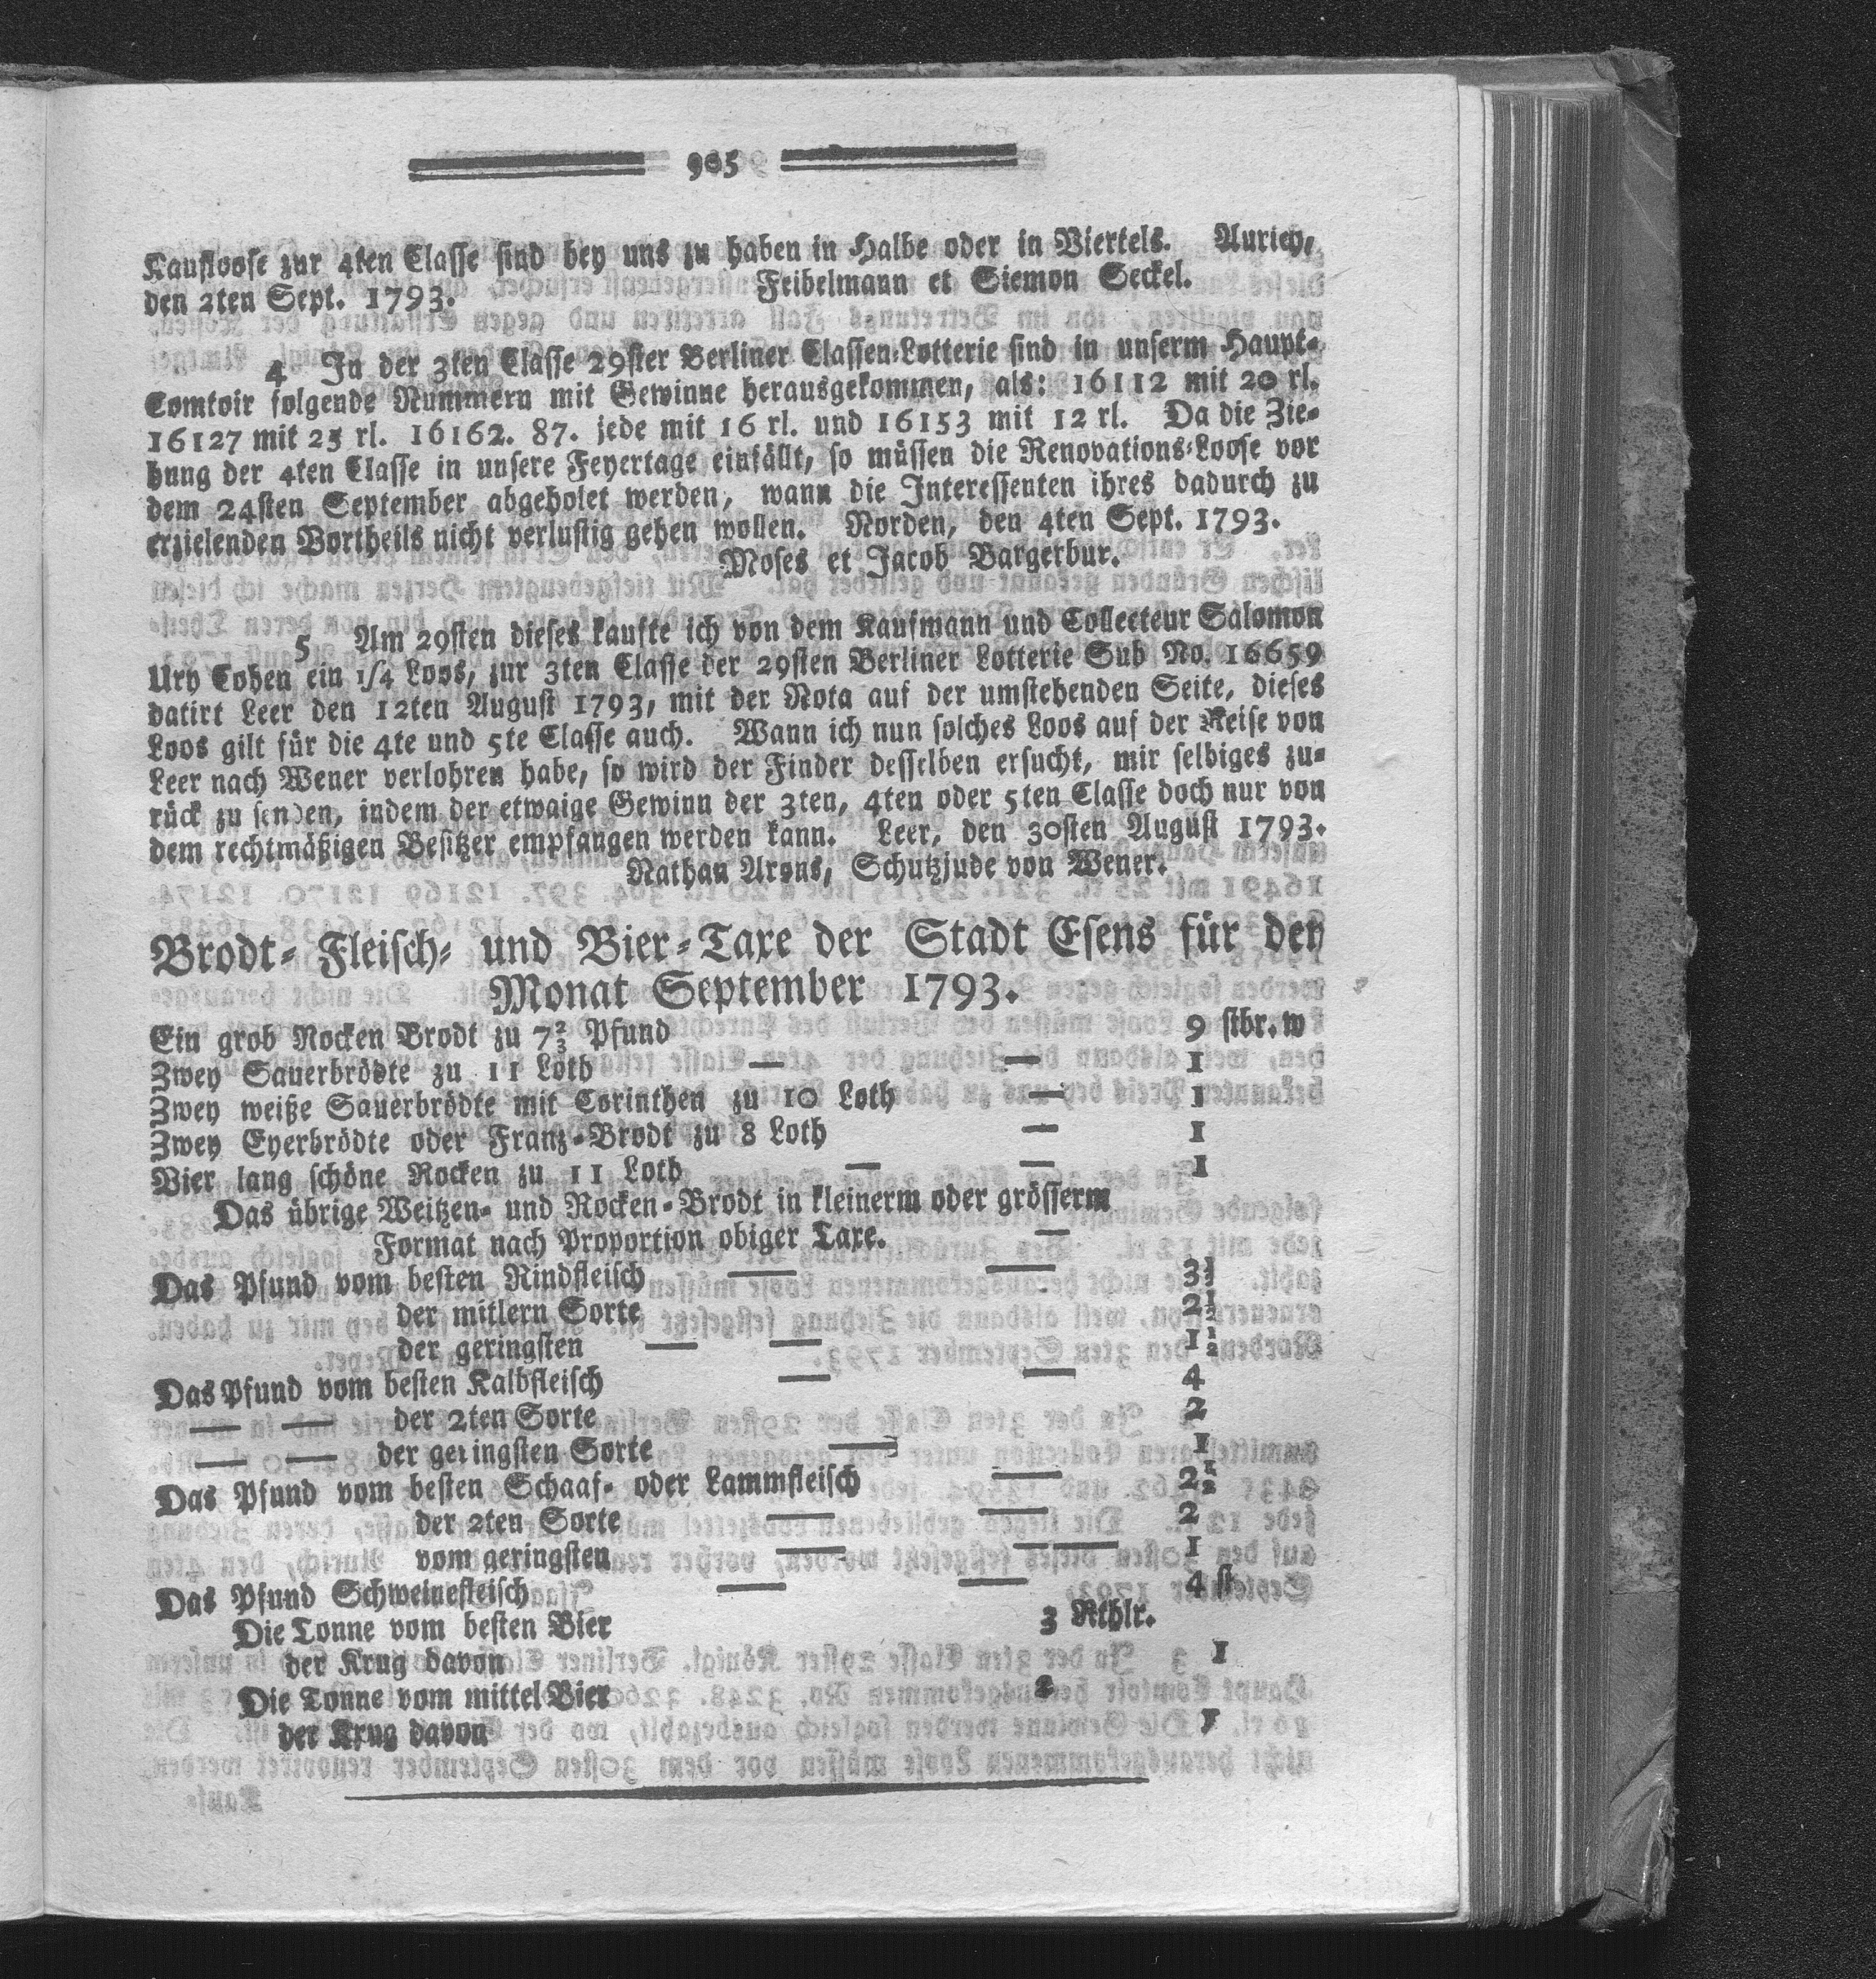 905
Kaufloose zur 4ten Classe sind bey uns zu haben in Halbe oder in Viertels. Aurich,
den 2ten Sept. 1793. Feibelmann et Siemon Seckel.
4 In der 3ten Classe 29ster Berliner Classen-Lotterie sind in unserm Haupt-
Comtoir folgende Nummern mit Gewinne herausgekommen, als: 16112 mit 20 rl.
16127 mit 25 rl. 16162. 87. jede mit 16 rl. und 16153 mit 12 rl. Da die Zie-
hung der 4ten Classe in unsere Feyertage einfällt, so müssen die Renovations-Loose vor
dem 24sten September abgeholet werden, wann die Interessenten ihres dadurch zu
erzielenden Vortheils nicht verlustig gehen wollen. Norden, den 4ten Sept. 1793.
Moses et Jacob Bargerbur.
5 Am 29sten dieses kaufte ich von dem Kaufmann und Collecteur Salomon
Ury Cohen ein 1/4 Loos, zur 3ten Classe der 29sten Berliner Lotterie Sub No. 16659
datirt Leer den 12ten August 1793, mit der Nota auf der umstehenden Seite, dieses
Loos gilt für die 4te und 5te Classe auch. Wann ich nun solches Loos auf der Reise von
Leer nach Wener verlohren habe, so wird der Finder desselben ersucht, mir selbiges zu-
rück zu senden, indem der etwaige Gewinn der 3ten, 4ten oder 5ten Classe doch nur von
dem rechtmäßigen Besitzer empfangen werden kann. Leer, den 30sten August 1793.
Nathan Arons, Schutzjude von Wener.
Brodt- Fleisch- und Bier-Taxe der Stadt Esens für den
Monat September 1793.
Ein grob Rocken Brodt zu 7⅔ Pfund 9 stbr. w
Zwey Sauerbrödte zu 11 Loth — — 1
Zwey weiße Sauerbrödte mit Corinthen zu 10 Loth — 1
Zwey Eyerbrödte oder Franz-Brodt zu 8 Loth — 1
Vier lang schöne Rocken zu 11 Loth — — 1
Das übrige Weitzen- und Rocken-Brodt in kleinerm oder grösserm
Format nach Proportion obiger Taxe. —
Das Pfund vom besten Rindfleisch — — 3½
der mitlern Sorte 2½
der geringsten — — 1½
Das Pfund vom besten Kalbfleisch — — 4
— — der 2ten Sorte 2
— — der geringsten Sorte — 1
Das Pfund vom besten Schaaf- oder Lammfleisch — 2½
der 2ten Sorte — — 2
vom geringsten — — 1
Das Pfund Schweinefleisch — — 4 st
Die Tonne vom besten Bier 3 Rthlr.
der Krug davon 1
Die Tonne vom mittel Bier 2
der Krug davon